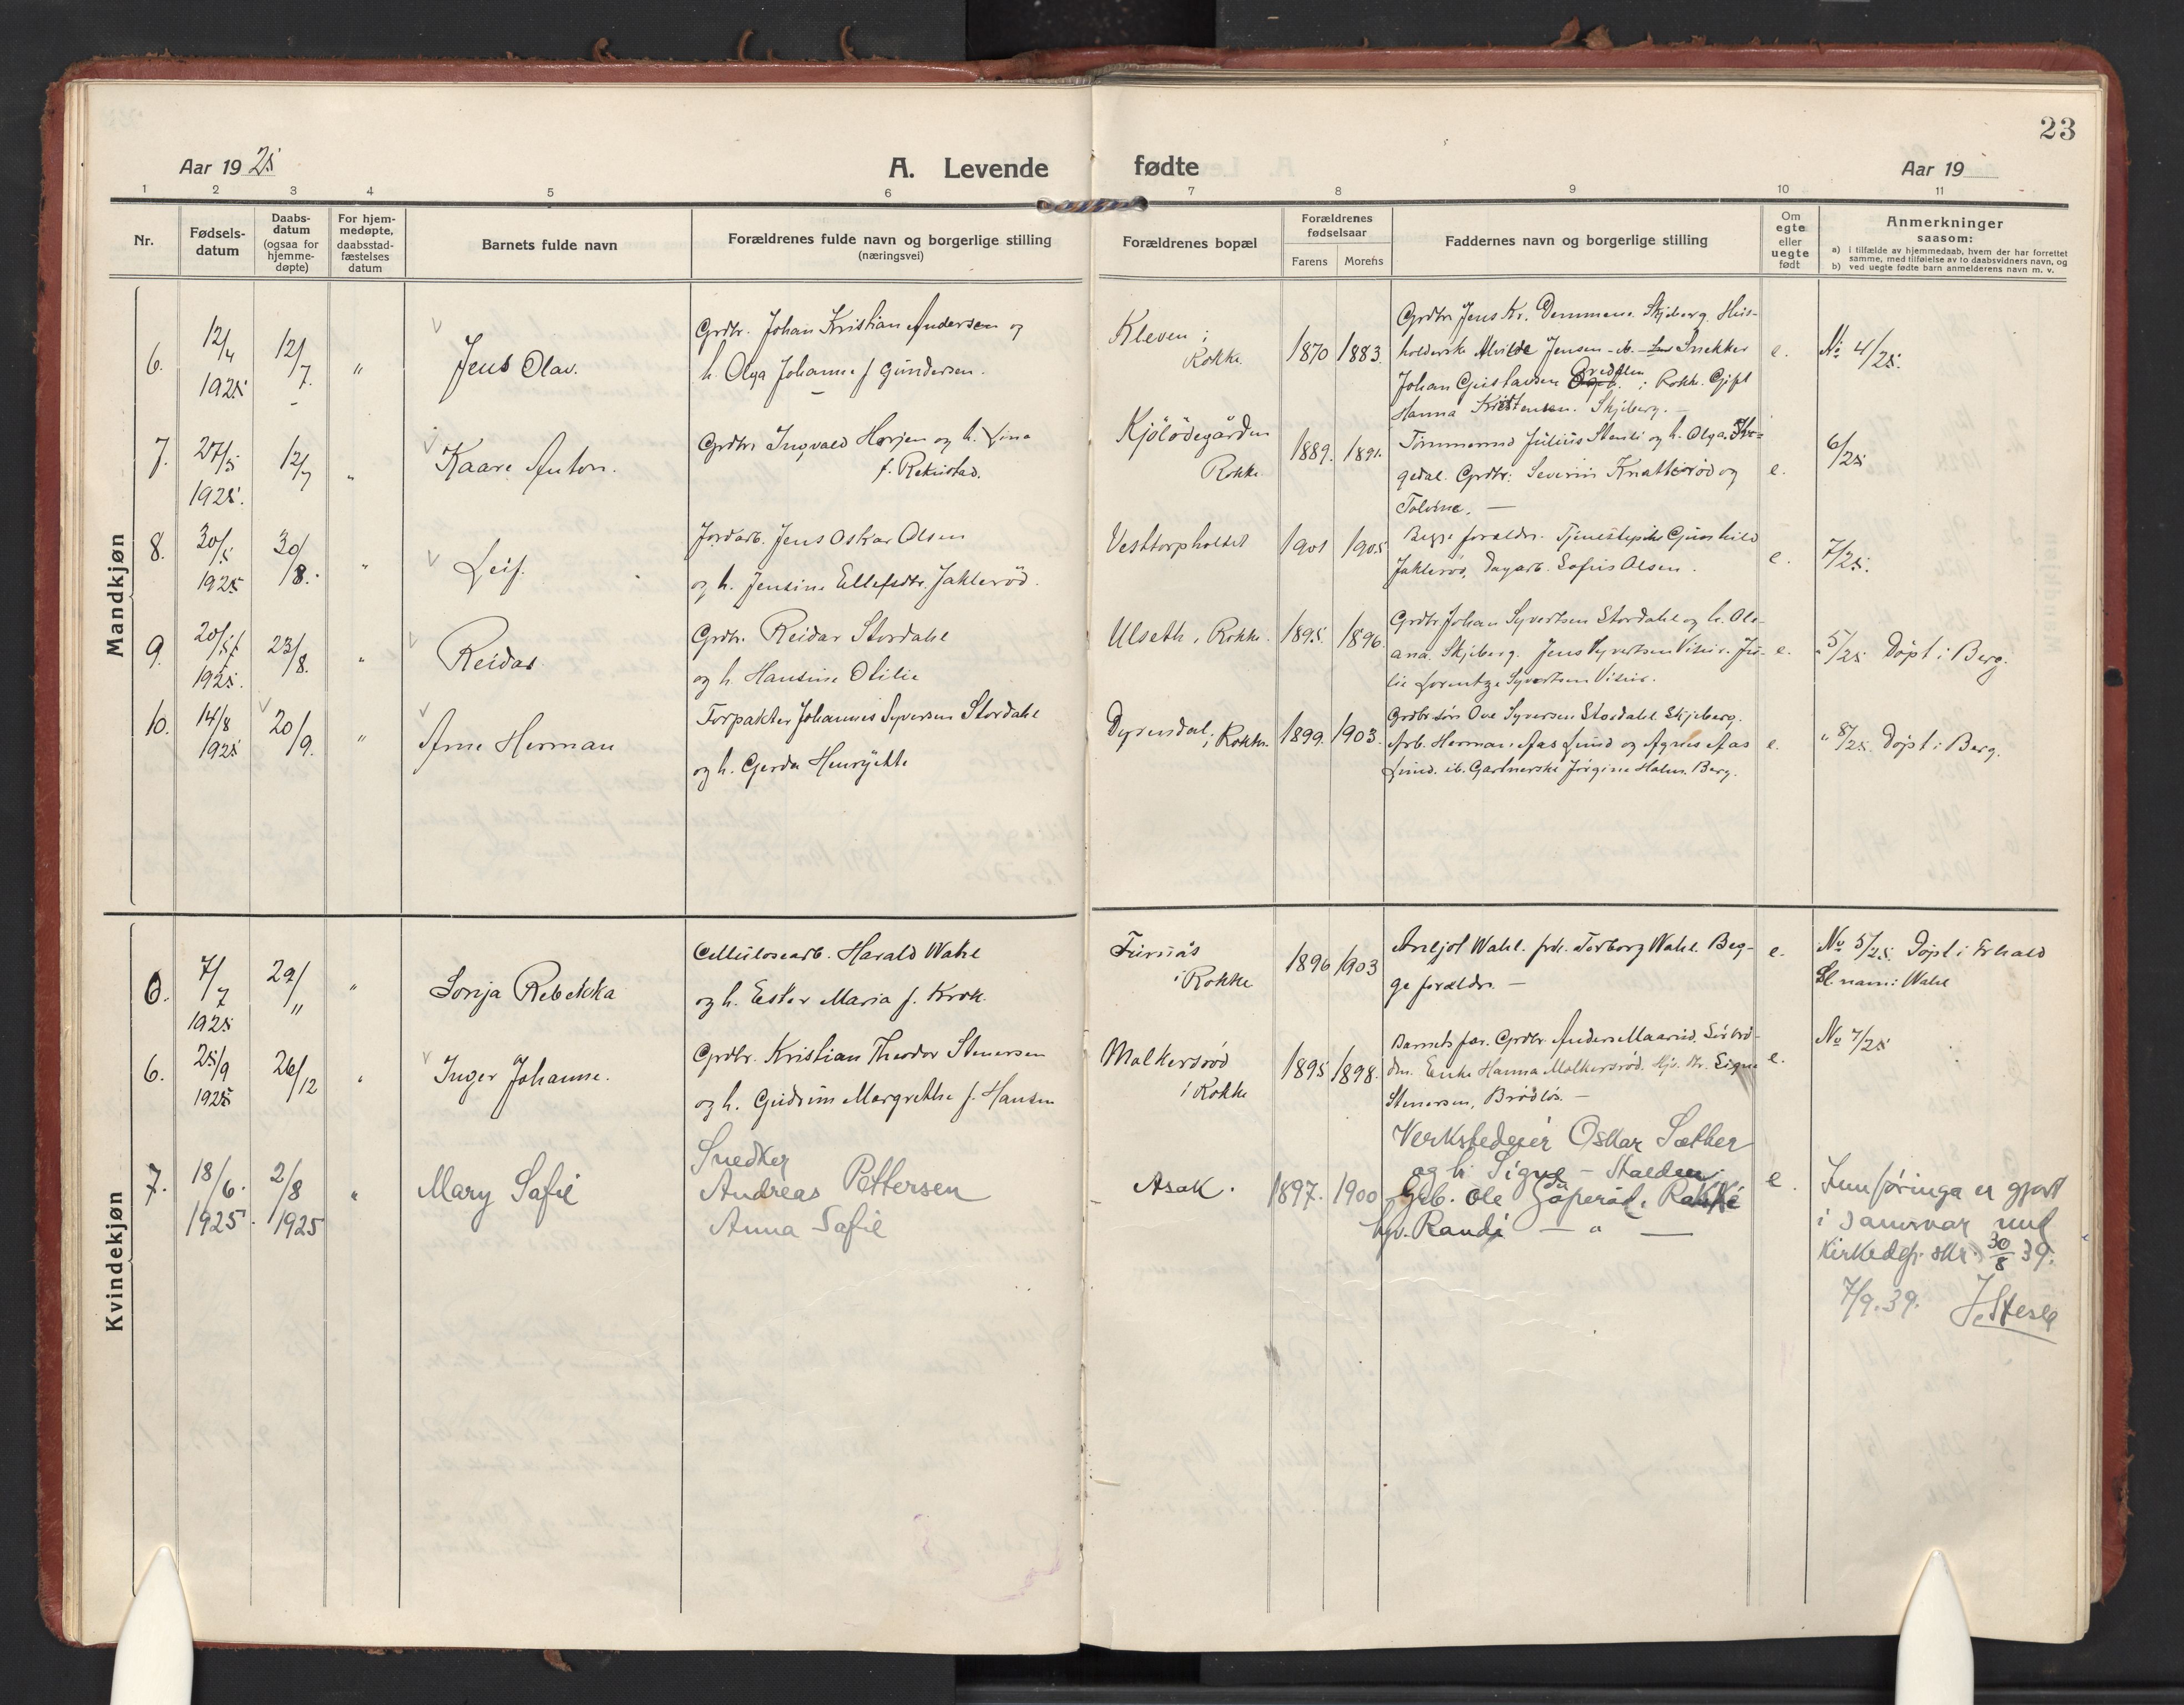 23
Aar 1925
A. Levende fødte
Aar 19
1 2 3 4 5 6 7 8 9 10 11
Nr.
Fødsels-
datum
Daabs-
datum
(ogsaa for
hjemme-
døpte)
For hjem-
medøpte,
daabsstad-
fæstelses
datum
Barnets fulde navn
Forældrenes fulde navn og borgerlige stilling
(næringsvei)
Forældrenes bopæl
Forældrenes
fødselsaar
Farens Morens
Faddernes navn og borgerlige stilling
Om
egte
eller
uegte
født
Anmerkninger
saasom:
a) i tilfælde av hjemmedaab, hvem der har forrettet
samme, med tilføielse av to daabsvidners navn, og
b) ved uegte fødte barn anmelderens navn m. v.
Mandkjøn
6.
12/4
1925
12/7.
"
Jens Olav.
Grdbr. Johan Kristian Andersen og
h. Olga Johanne f Gundersen.
Kleven i
Rokke.
1870 1883.
Grdbr Jens Kr. Skjeberg. Hus-
holderske Alvilde Jensen - ib. - Snekker
Johan Gustavsen i Rokke. Gift
Hanna Kristensen. Skjeberg. -
e.
No 4/25.
7.
27/5
1925.
12/7
"
Kaare Anton.
Grdbr. Ingvald Horjen og h. Lina
f. Rekustad.
Kjölödegården
Rokke.
1889. 1891.
Tömmermd Julius Stensli og h. Olga.
gedal. Grdbr. Severin Knatteröd og
Tolvine. -
e.
6/25
8.
30/5
1925
30/8.
"
Leif.
Jordarb. Jens Oskar Olsen
og h. Jensine Ellefsdtr. Jakleröd.
Vesttorpholtet
1901 1905
Begge foreldre. Tjenestepike Gunhild
Jakleröd, Dagarb. Olsen.
e.
7/25.
9.
20/5
1925.
23/8.
"
Reidar
Grdbr. Reidar Stordahl
og h. Hansine Otilie
Ulseth, Rokke.
1895. 1896.
Grdbr Johan Syvertsen Stordahl og h. Ole-
ana. Skjeberg. Jens Syvertsen Visür. Ju-
lie Lorentze Syvertsen Visür.
e.
" 5/25 Döpt i Berg.
10.
14/8
1925
20/9.
"
Arne Herman
Forpakter Johannes Syversen Stordahl
og h. Gerda Henrijette
Dyrendal, i Rokke.
1899. 1903.
Grdbr.sön Ove Syversen Stordahl Skjeberg.
Arb. Herman Aas Lund og Agnes Aas
Lund. ib. Gartnerske Jörgine Holm. Berg.
e.
" 8/25. Döpt i Berg.
Kvindekjøn
7/7
1925
29/11
"
Sonja Rebekka
Cellulosearb. Harald Wahl
og h. Ester Maria f. Krok.
Furuås
i Rokke
1896 1903
Wahl. frk. Torborg Wahl. Beg-
ge foreldre. -
e.
No 5/25. Döpt i
Sl. navn: Wahl
6.
25/9
1925
26/12
"
Inger Johanne.
Grdbr. Kristian Theodor Stenersen
og h. Gudrun Margrethe f. Hansen
Molkersröd
i Rokke
1895 1898.
Barnets far. Grdbr. Anders
Enke Hanna Molkersröd. Signe
Stenersen, Brödlös. -
e.
No 7/25
7.
18/6.
1925.
2/8
1925
"
Mary Safie
Snedker
Andreas Pettersen
Anna Safie
Asak.
1897. 1900
Verkstedeier Oskar Sæther
og h. Signe - Halden.
Grb. Ole i Rokke
hv. Randi — " —
e.
Innføringa er gjort
i samsvar med
Kirkedep. skr. 30/8 39.
7/9.39.